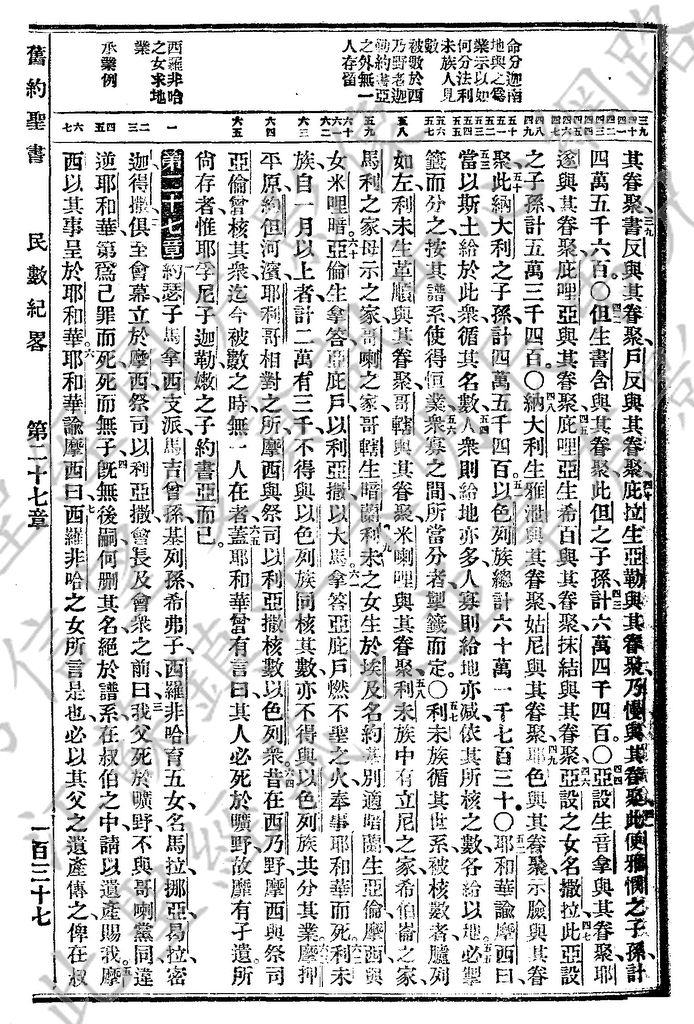 舊約聖書 民數紀畧 第二十七章 一百三十七
命分迦南
地與之爲
業示以如
何分法利
未族人見
數
被數於西
乃野者迦
勒約書亞
之外無一
人存留
西羅非哈
之女求地
業
承業例
其眷聚書反與其眷聚戶反與其眷聚庇拉生亞勒與其眷聚乃慢與其眷聚此便雅憫之子孫計
四萬五千六百〇但生書含與其眷聚此但之子孫計六萬四千四百〇亞設生音拿與其眷聚耶
遂與其眷聚庇哩亞與其眷聚庇哩亞生希百與其眷聚抹結與其眷聚亞設之女名撒拉此亞設
之子孫計五萬三千四百〇納大利生雅泄與其眷聚姑尼與其眷聚耶色與其眷聚示臉與其眷
聚此納大利之子孫計四萬五千四百以色列族總計六十萬一千七百三十〇耶和華諭摩西曰
當以斯土給於此衆循其名數人衆則給地亦多人寡則給地亦減依其所核之數各給以地必掣
籤而分之按其譜系使得恒業衆寡之間所當分者掣籤而定〇利未族循其世系被核數者臚列
如左利未生革順與其眷聚哥轄與其眷聚米喇哩與其眷聚利未族中有立尼之家希伯崙之家
馬利之家母示之家哥喇之家哥轄生暗蘭利未之女生於埃及名約基別適暗蘭生亞倫摩西與
女米哩暗亞倫生拿答亞庇戶以利亞撒以大馬拿答亞庇戶燃不聖之火奉事耶和華而死利未
族自一月以上者計二萬有三千不得與以色列族同核其數亦不得與以色列族共分其業摩押
平原約但河濱耶利哥相對之所摩西與祭司以利亞撒核數以色列衆昔在西乃野摩西與祭司
亞倫曾核其衆迄今被數之時無一人在者蓋耶和華曾有言曰其人必死於曠野故靡有孑遺所
尙存者惟耶孚尼子迦勒嫩之子約書亞而已
第二十七章 約瑟子馬拿西支派馬吉曾孫基列孫希弗子西羅非哈育五女名馬拉挪亞曷拉密
迦得撒俱至會幕立於摩西祭司以利亞撒會長及會衆之前曰我父死於曠野不與哥喇黨同違
逆耶和華第爲己罪而死死而無子旣無後嗣何刪其名絕於譜系在叔伯之中請以遺產賜我摩
西以其事呈於耶和華耶和華諭摩西曰西羅非哈之女所言是也必以其父之遺產傳之俾在叔